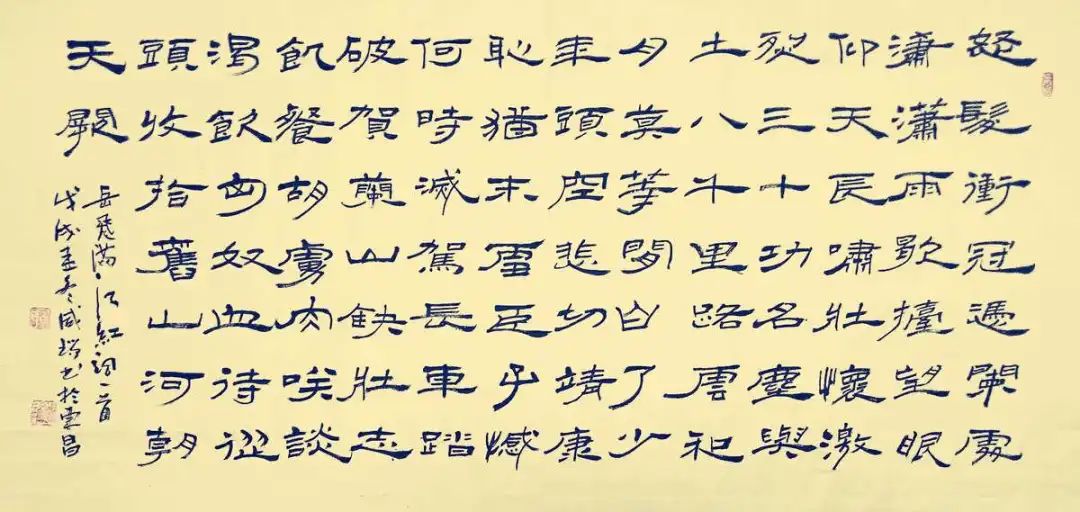 怒髮衝冠憑闌處
瀟瀟雨歇擡望眼
仰天長嘯壯懷激
烈三十功名塵與
土八千里路雲和
月莫等閒白了少
年頭空悲切靖康
恥猶未雪臣子憾
何時滅駕長車踏
破賀蘭山缺壯志
飢餐胡虜肉咲談
渴飲匈奴血待從
頭收拾舊山河朝
天闕
岳飛滿江紅詞一首
戊戌孟冬咸書於昌